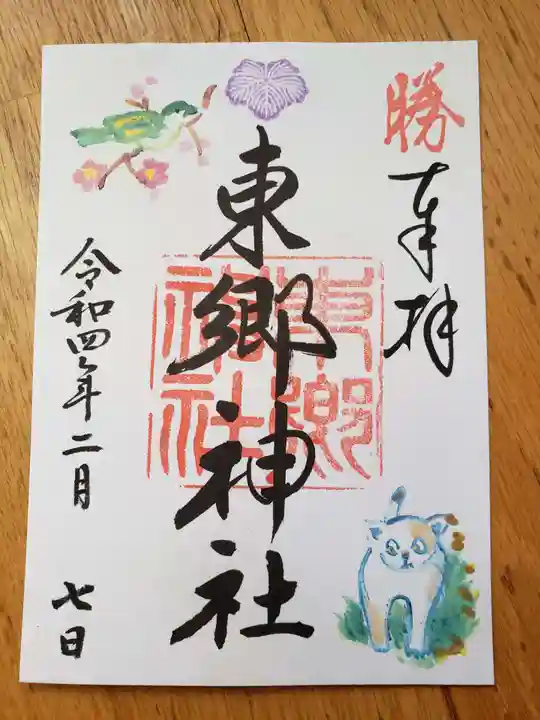 勝
奉拝
東郷神社
東郷神社
令和四年二月 七日